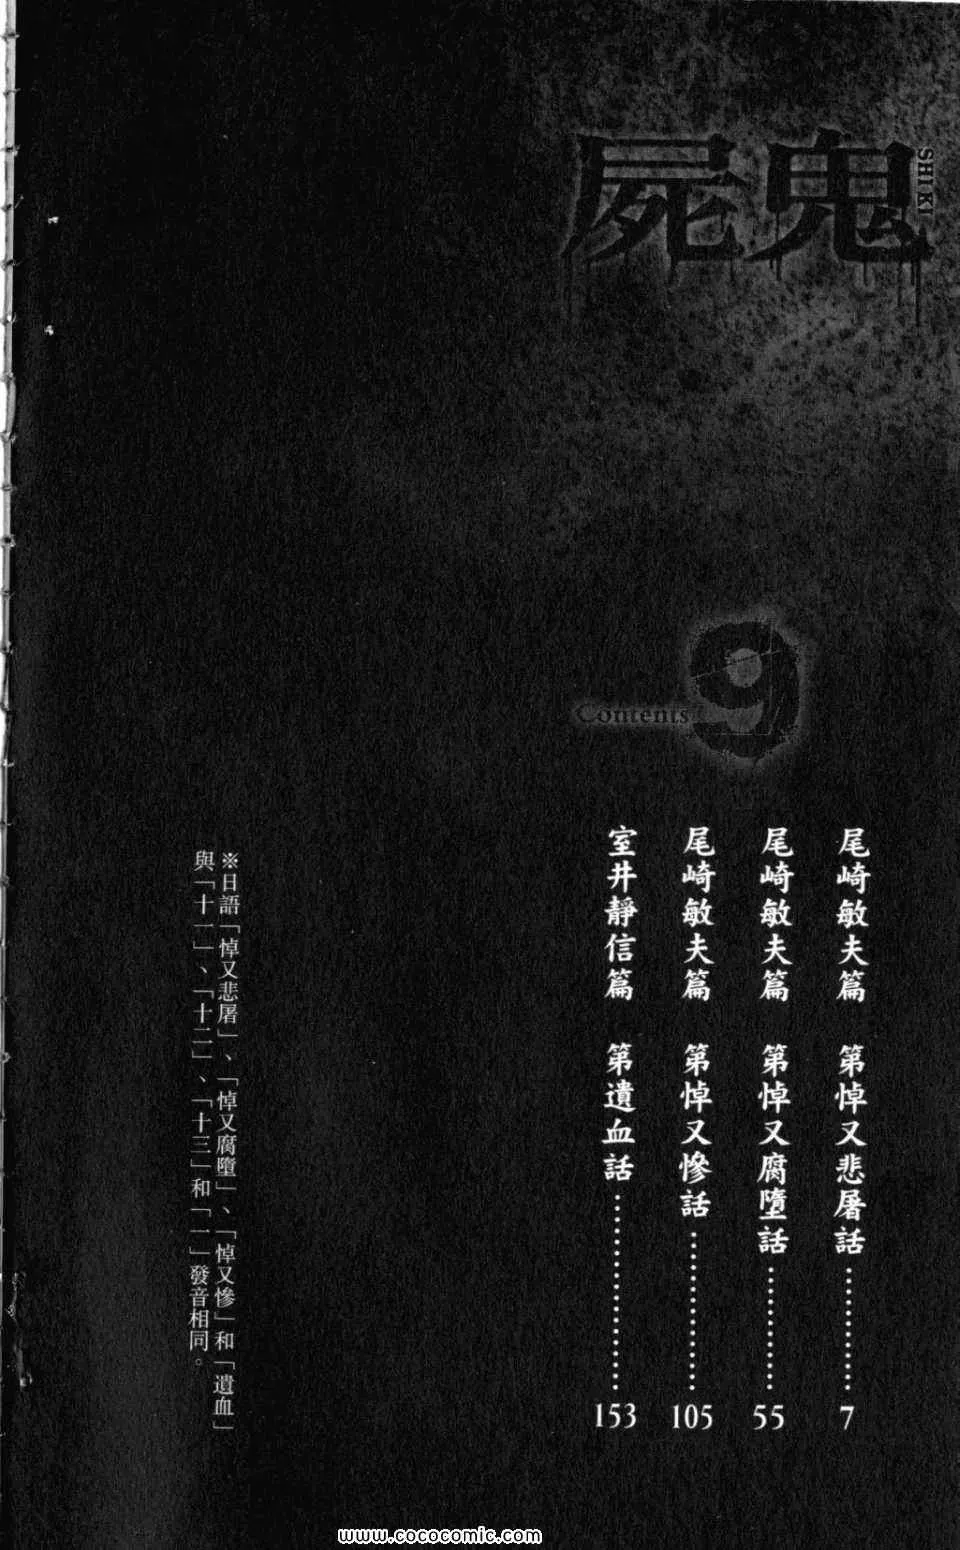 屍鬼
SHIKI
Contents
9
尾崎敏夫篇 第悼又悲屠話…………7
尾崎敏夫篇 第悼又腐墮話…………55
尾崎敏夫篇 第悼又慘話……………105
室井靜信篇 第遺血話………………153
※日語「悼又悲屠」、「悼又腐墮」、「悼又慘」和「遺血」
與「十一」、「十二」、「十三」和「一」發音相同。
http://www.cococomic.com